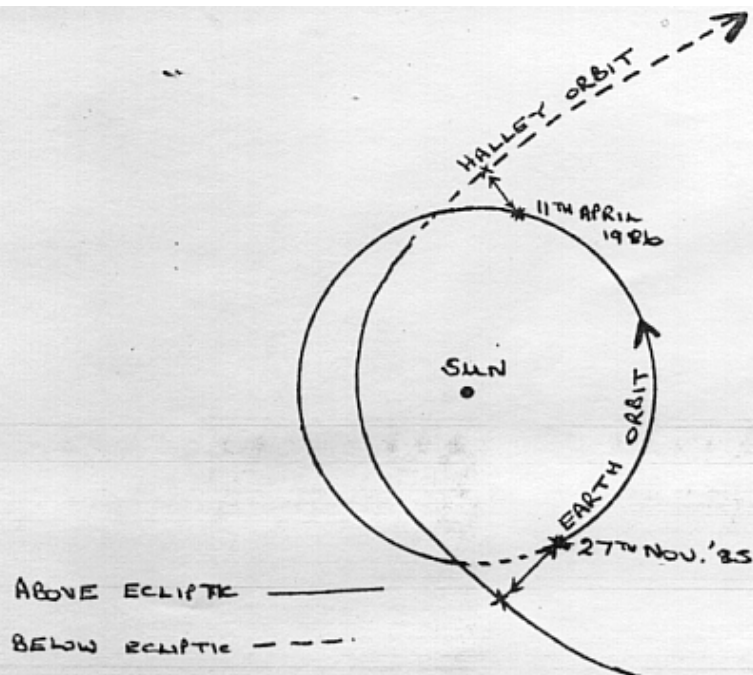 HALLEY ORBIT
11TH APRIL
1986
SUN
EARTH ORBIT
27TH NOV. '85
ABOVE ECLIPTIC
BELOW ECLIPTIC